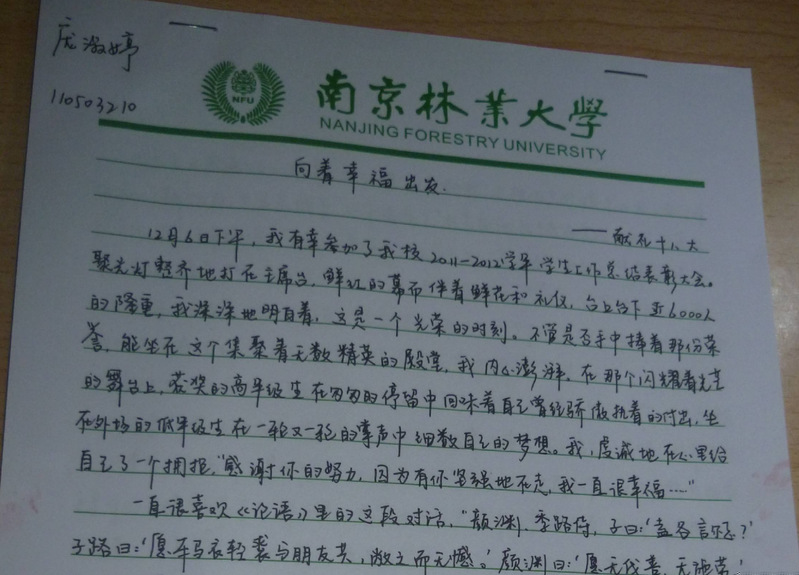 庞淑婷
110503210
NFU
南京林業大學
NANJING FORESTRY UNIVERSITY
向着幸福出发.
——献礼十八大
12月6日下午，我有幸参加了我校2011-2012学年学生工作总结表彰大会。
聚光灯整齐地打在主席台，鲜红的幕布伴着鲜花和礼仪，台上台下近6000人
的隆重，我深深地明白着，这是一个光荣的时刻。不管是否手中捧着那份荣
誉，能坐在这个集聚着无数精英的殿堂，我内心澎湃。在那个闪耀着光芒
的舞台上，获奖的高年级生在匆匆的停留中回味着自己曾经骄傲执着的付出，坐
在外场的低年级生在一轮又一轮的掌声中细数自己的梦想。我，虔诚地在心里给
自己了一个拥抱，“感谢你的努力，因为有你坚强地在走，我一直很幸福……”
一直很喜欢《论语》里的这段对话，“颜渊、季路侍，子曰：‘盍各言尔志？’
子路曰：‘愿车马衣轻裘与朋友共，敝之而无憾。’颜渊曰：‘愿无伐善，无施劳’